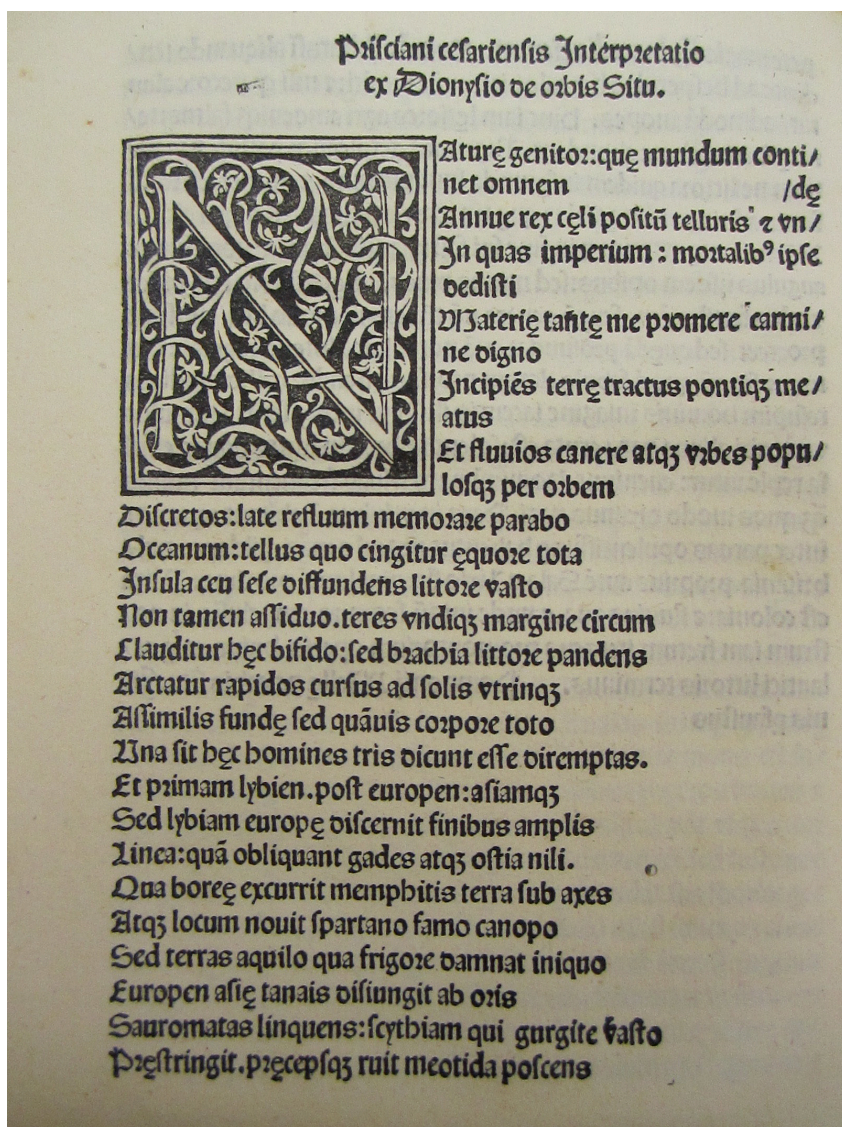 Priſciani ceſarienſis Interpretatio
ex Dionyſio de orbis Situ.
NAturę genitor:quę mundum conti/
net omnem /dę
Annue rex cęli poſitũ telluris ⁊ vn/
In quas imperium : mortalibꝰ ipſe
dediſti
Materię tantę me promere carmi/
ne digno
Incipiẽs terrę tractus pontiqꝫ me/
atus
Et fluuios canere atqꝫ vrbes popu/
loſqꝫ per orbem
Diſcretos:late refluum memorare parabo
Oceanum:tellus quo cingitur ęquore tota
Inſula ceu ſeſe diffundens littore vaſto
Non tamen aſſiduo.teres vndiqꝫ margine circum
Clauditur hęc bifido:ſed brachia littore pandens
Arctatur rapidos curſus ad ſolis vtrinqꝫ
Aſſimilis fundę ſed quãuis corpore toto
Una ſit hęc homines tris dicunt eſſe diremptas.
Et primam lybien.poſt europen:aſiamqꝫ
Sed lybiam europę diſcernit finibus amplis
Linea:quã obliquant gades atqꝫ oſtia nili.
Qua boreę excurrit memphitis terra ſub axes
Atqꝫ locum nouit ſpartano famo canopo
Sed terras aquilo qua frigore damnat iniquo
Europen aſię tanais diſiungit ab oris
Sauromatas linquens:ſcythiam qui gurgite vaſto
Pręſtringit.pręcepſqꝫ ruit meotida poſcens